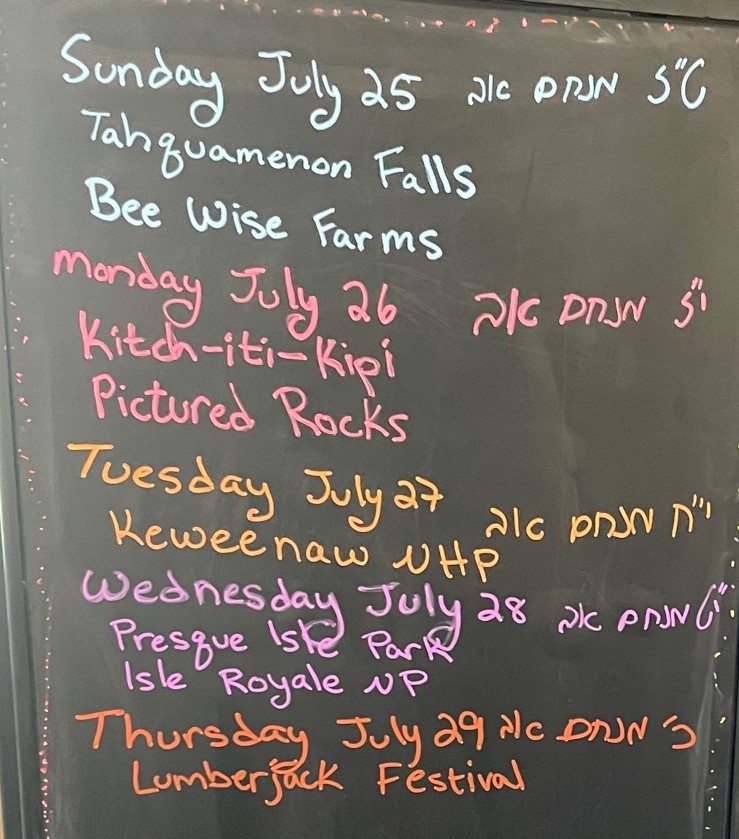 Sunday July 25 ט"ז מנחם אב
Tahquamenon Falls
Bee Wise Farms
Monday July 26 י"ז מנחם אב
Kitch-iti-Kipi
Pictured Rocks
Tuesday July 27 י"ח מנחם אב
Keweenaw NHP
Wednesday July 28 י"ט מנחם אב
Presque Isle Park
Isle Royale NP
Thursday July 29 כ' מנחם אב
Lumberjack Festival